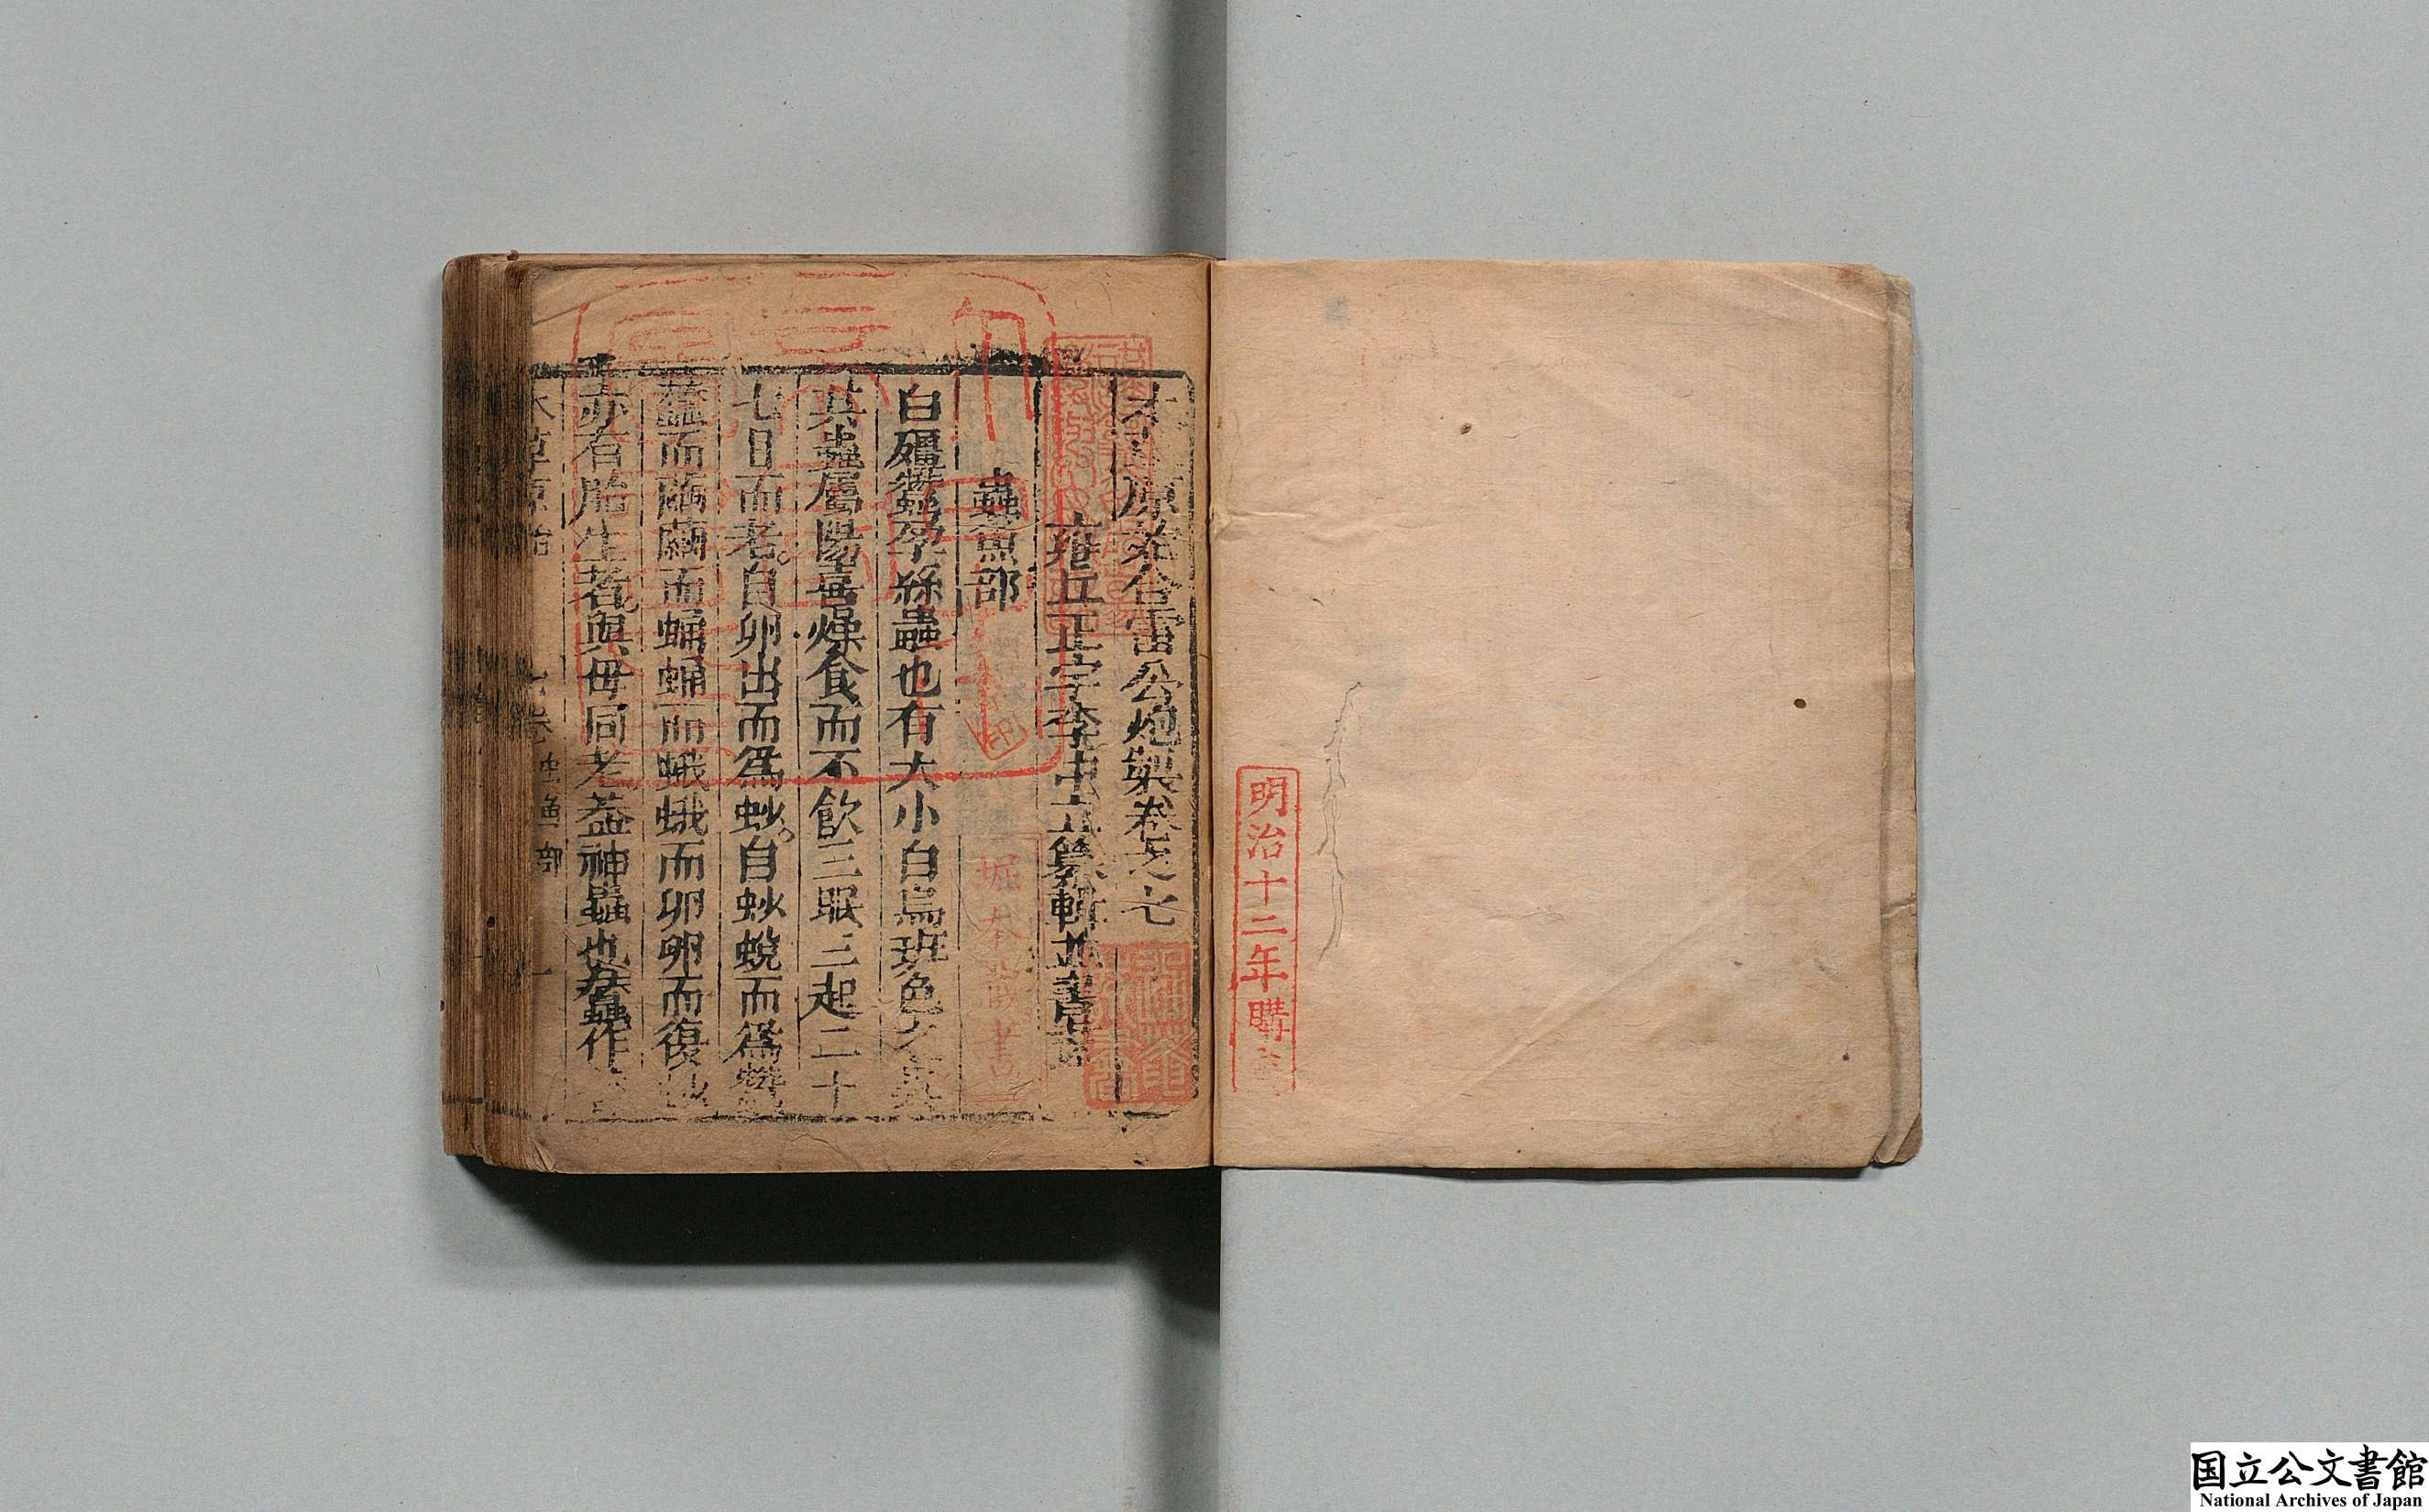 明治十二年購
本草原始合雷公炮製卷之七
雍丘正宇李中立纂輯並書畫
蟲魚部
白殭蠶孕絲蟲也有大小白烏斑色之異
其蟲屬陽喜燥食而不飲三眠三起二十
七日而老自卵出而爲𧉈自𧉈蛻而爲蠶
蠶而繭繭而蛹蛹而蛾蛾而卵卵而復𧉈
亦有胎生者與母同老葢神蟲也病蠶作
本草原始
七卷 虫魚部 一
堀本藏書
国立公文書館
National Archives of Japan